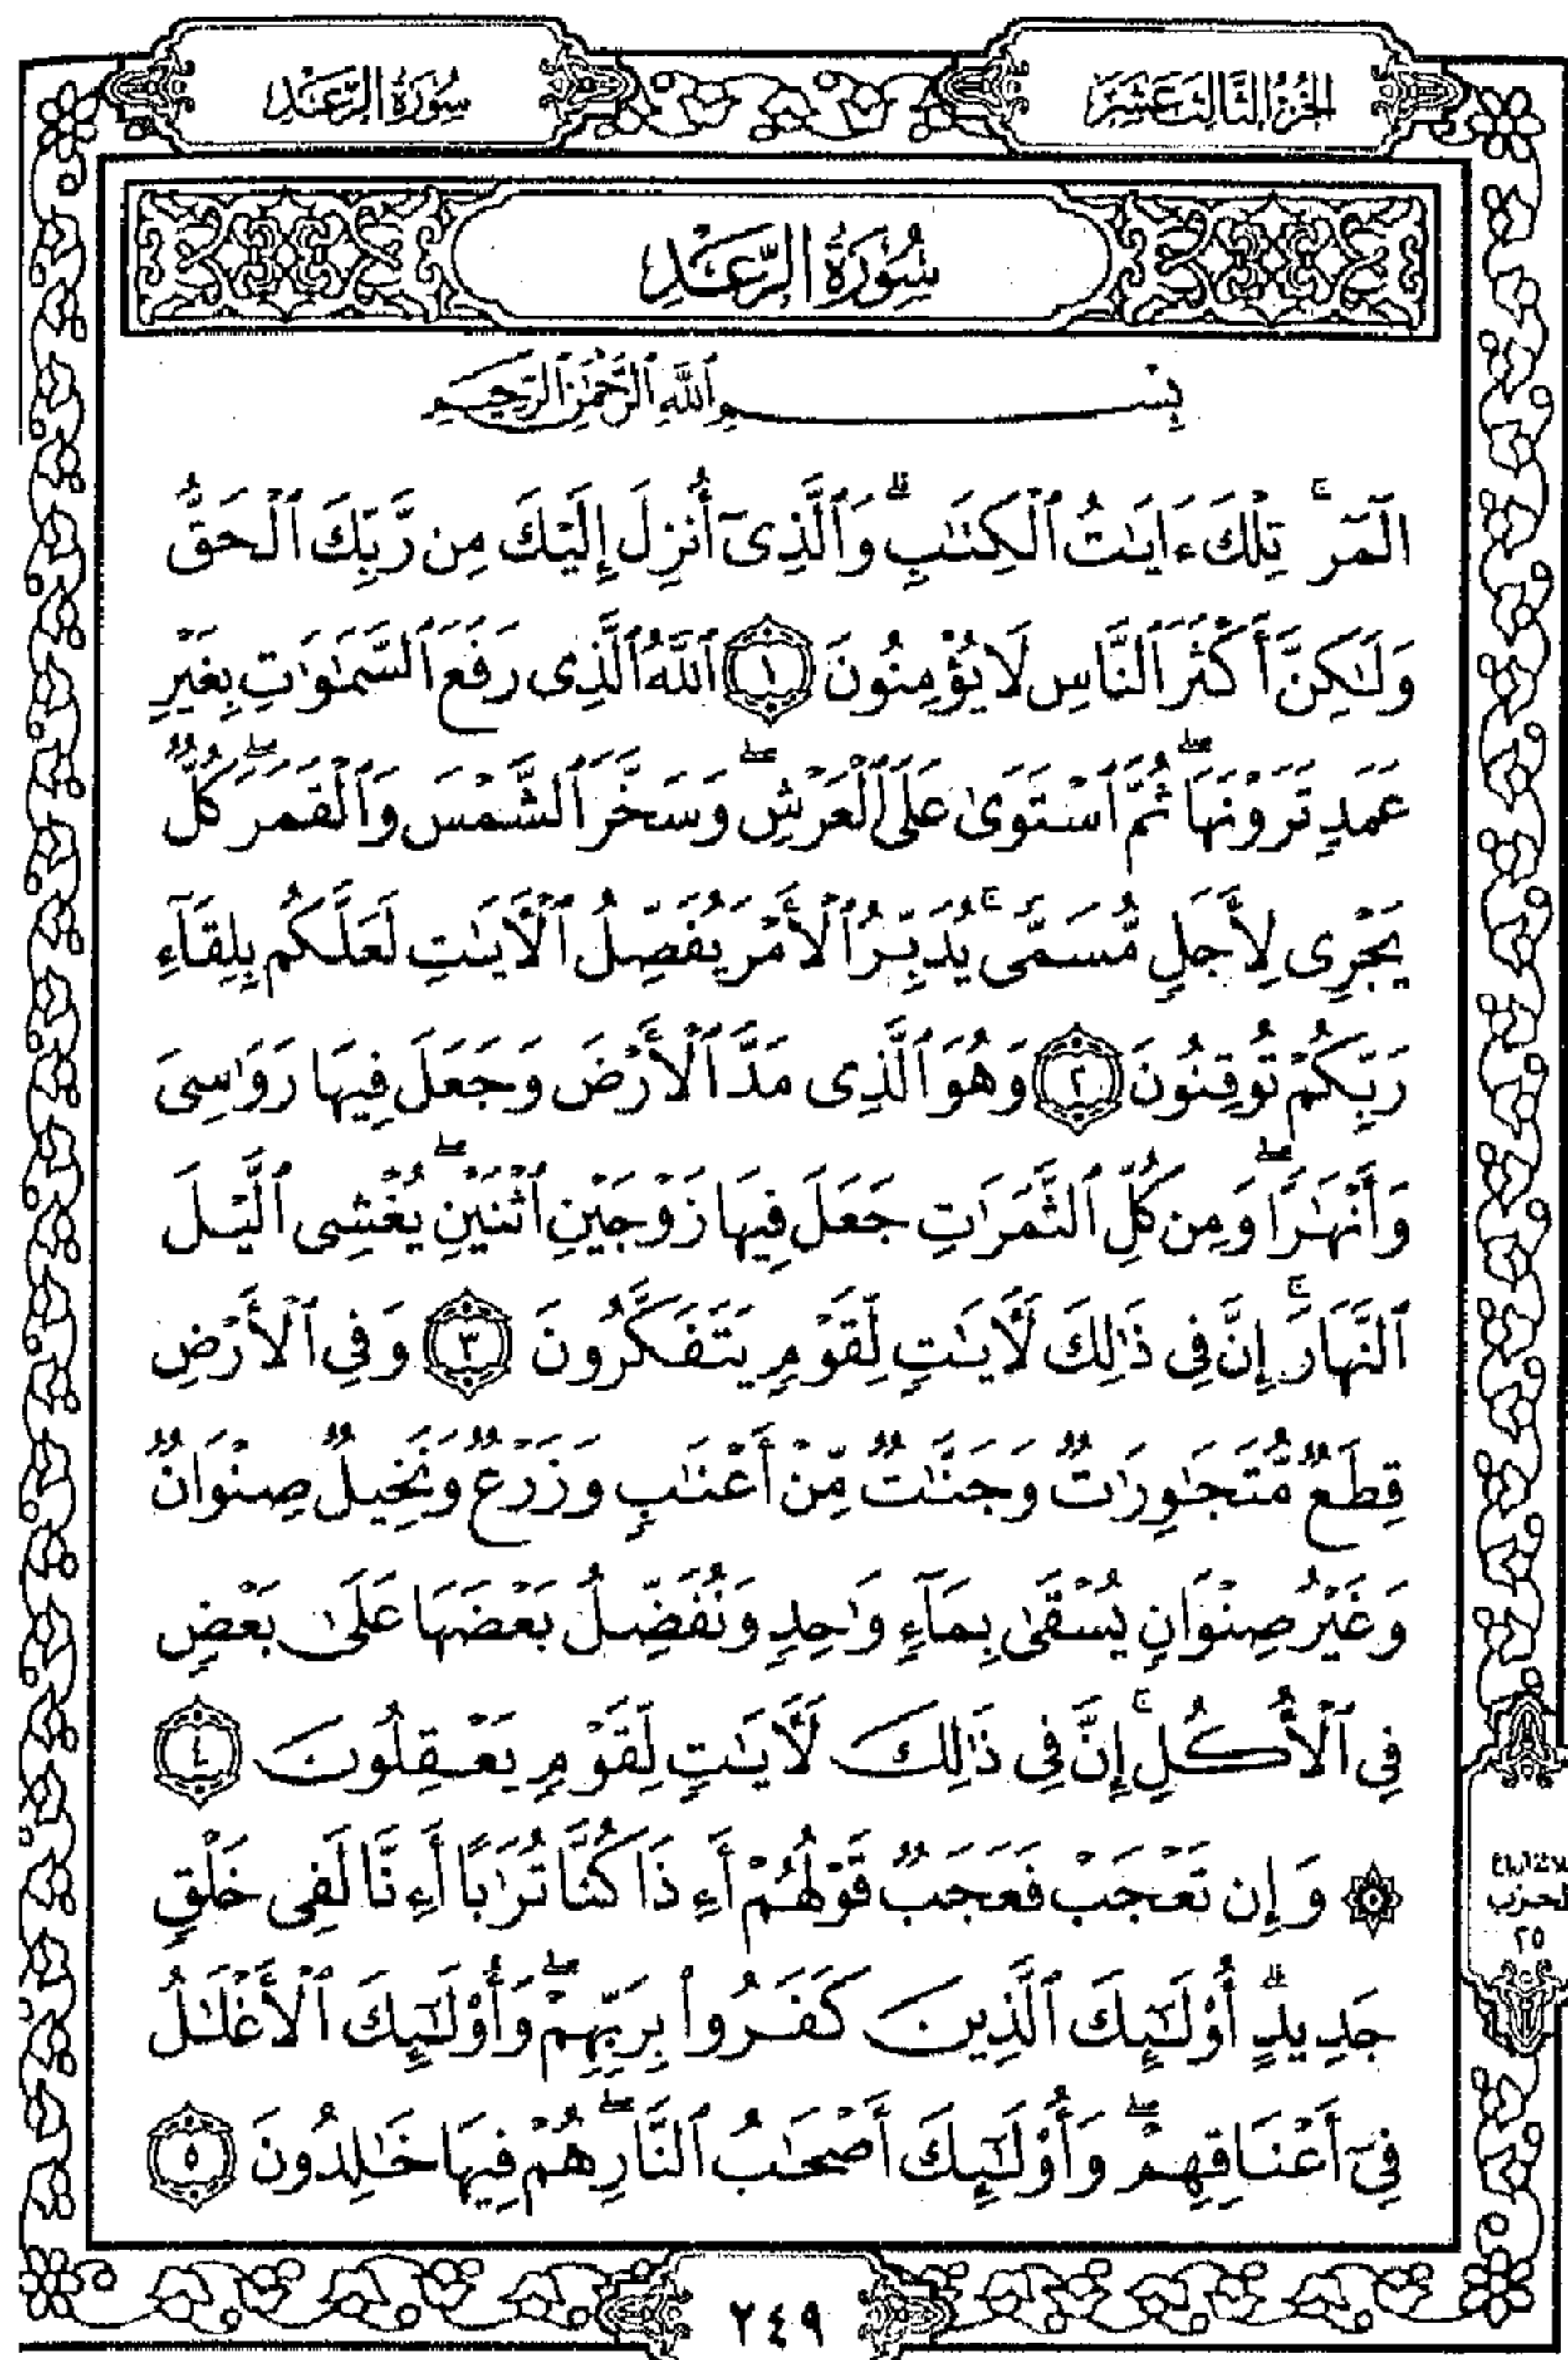 الجزء الثالث عشر
سورة الرعد
سُورَةُ الرَّعْدِ
بِسْمِ ٱللَّهِ ٱلرَّحْمَٰنِ ٱلرَّحِيمِ
الٓمٓرۚ تِلْكَ ءَايَٰتُ ٱلْكِتَٰبِۗ وَٱلَّذِىٓ أُنزِلَ إِلَيْكَ مِن رَّبِّكَ ٱلْحَقُّ
وَلَٰكِنَّ أَكْثَرَ ٱلنَّاسِ لَا يُؤْمِنُونَ ١ ٱللَّهُ ٱلَّذِى رَفَعَ ٱلسَّمَٰوَٰتِ بِغَيْرِ
عَمَدٍ تَرَوْنَهَاۖ ثُمَّ ٱسْتَوَىٰ عَلَى ٱلْعَرْشِۖ وَسَخَّرَ ٱلشَّمْسَ وَٱلْقَمَرَۖ كُلٌّ
يَجْرِى لِأَجَلٍ مُّسَمًّىۚ يُدَبِّرُ ٱلْأَمْرَ يُفَصِّلُ ٱلْأَيَٰتِ لَعَلَّكُم بِلِقَآءِ
رَبِّكُمْ تُوقِنُونَ ٢ وَهُوَ ٱلَّذِى مَدَّ ٱلْأَرْضَ وَجَعَلَ فِيهَا رَوَٰسِىَ
وَأَنْهَٰرًاۖ وَمِن كُلِّ ٱلثَّمَرَٰتِ جَعَلَ فِيهَا زَوْجَيْنِ ٱثْنَيْنِۖ يُغْشِى ٱلَّيْلَ
ٱلنَّهَارَۚ إِنَّ فِى ذَٰلِكَ لَأَيَٰتٍ لِّقَوْمٍ يَتَفَكَّرُونَ ٣ وَفِى ٱلْأَرْضِ
قِطَعٌ مُّتَجَٰوِرَٰتٌ وَجَنَّٰتٌ مِّنْ أَعْنَٰبٍ وَزَرْعٌ وَنَخِيلٌ صِنْوَانٌ
وَغَيْرُ صِنْوَانٍ يُسْقَىٰ بِمَآءٍ وَٰحِدٍ وَنُفَضِّلُ بَعْضَهَا عَلَىٰ بَعْضٍ
فِى ٱلْأُكُلِۚ إِنَّ فِى ذَٰلِكَ لَأَيَٰتٍ لِّقَوْمٍ يَعْقِلُونَ ٤
۞ وَإِن تَعْجَبْ فَعَجَبٌ قَوْلُهُمْ أَءِذَا كُنَّا تُرَٰبًا أَءِنَّا لَفِى خَلْقٍ
جَدِيدٍۗ أُو۟لَٰٓئِكَ ٱلَّذِينَ كَفَرُوا۟ بِرَبِّهِمْۖ وَأُو۟لَٰٓئِكَ ٱلْأَغْلَٰلُ
فِىٓ أَعْنَاقِهِمْۖ وَأُو۟لَٰٓئِكَ أَصْحَٰبُ ٱلنَّارِۖ هُمْ فِيهَا خَٰلِدُونَ ٥
الحزب
٢٥
٢٤٩